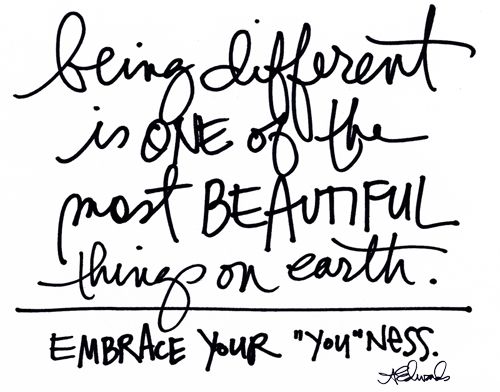 being different
is ONE of the
most BEAUTIFUL
things on earth.
EMBRACE YOUR "YOU"NESS.
AEdwards